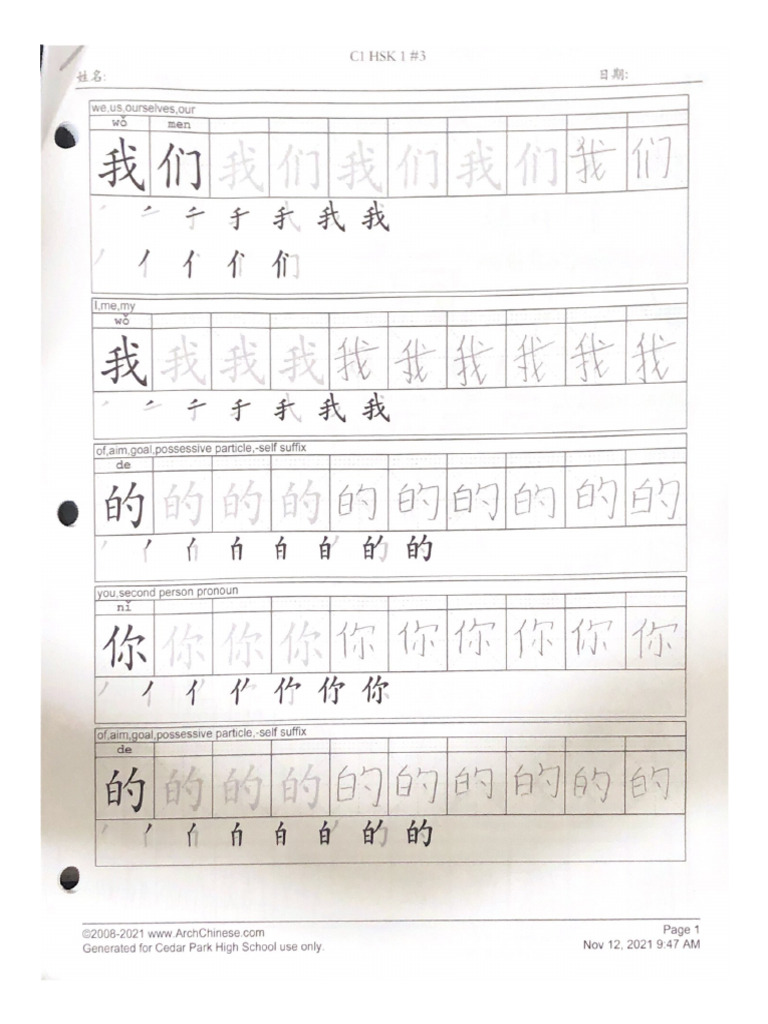 C1 HSK 1 #3
姓名: 日期:
we,us,ourselves,our
wǒ men
我 们 我 们 我 们 我 们 我 们
我
们
I,me,my
wǒ
我 我 我 我 我 我 我 我 我 我
我
of,aim,goal,possessive particle,-self suffix
de
的 的 的 的 的 的 的 的 的 的
的
you,second person pronoun
nǐ
你 你 你 你 你 你 你 你 你 你
你
of,aim,goal,possessive particle,-self suffix
de
的 的 的 的 的 的 的 的 的 的
的
©2008-2021 www.ArchChinese.com Page 1
Generated for Cedar Park High School use only. Nov 12, 2021 9:47 AM